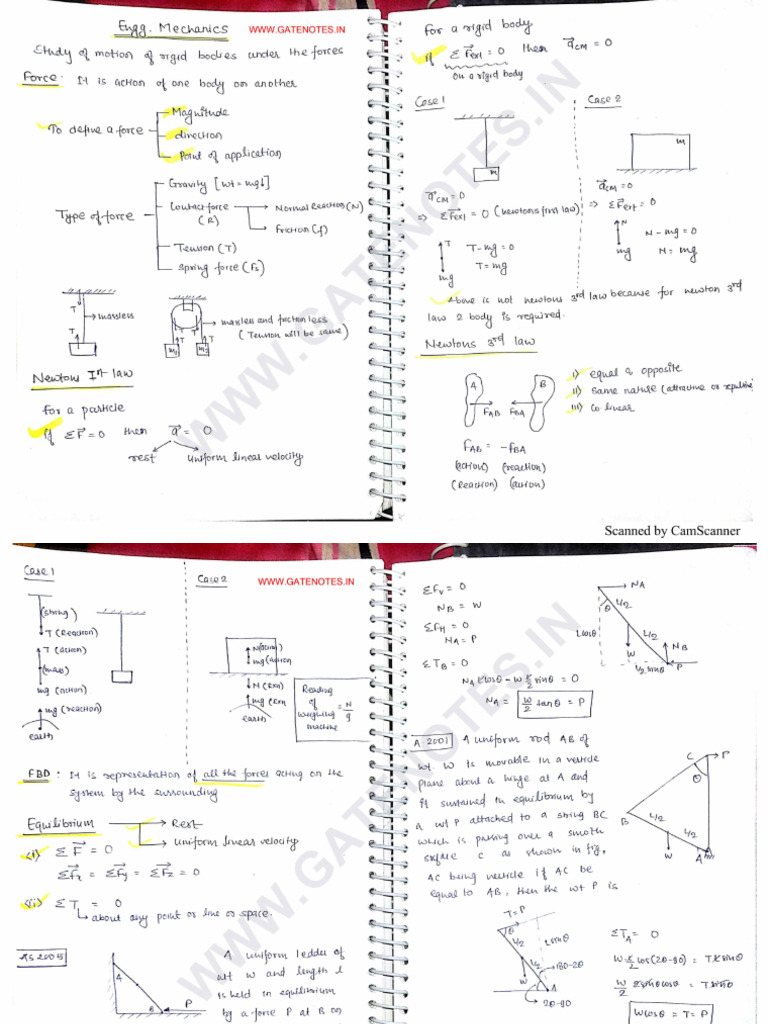 Engg. Mechanics
WWW.GATENOTES.IN
Study of motion of rigid bodies under the forces
Force: It is action of one body on another
To define a force
Magnitude
direction
Point of application
Type of force
Gravity [wt = mg↓]
Contact force (R)
Normal Reaction (N)
friction (f)
Tension (T)
Spring force (Fs)
T
T
massless
T T
T T
m1 m2
massless and frictionless
(Tension will be same)
Newtons Ist law
for a particle
if ΣF⃗ = 0 then a⃗ = 0
rest uniform linear velocity
for a rigid body
if ΣF⃗ext = 0 then a⃗CM = 0
on a rigid body
Case 1
Case 2
m
m
a⃗CM = 0
⇒ ΣF⃗ext = 0 (newtons first law)
T
mg
T-mg = 0
T = mg
a⃗CM = 0
⇒ ΣF⃗ext = 0
N
mg
N - mg = 0
N = mg
Above is not newtons 3rd law because for newton 3rd
law 2 body is required.
Newtons 3rd law
A B
FAB FBA
i) equal & opposite
ii) same nature (attractive or repulsive)
iii) co linear
FAB = -FBA
(action) (reaction)
(Reaction) (action)
WWW.GATENOTES.IN
Scanned by CamScanner
Case 1
(string)
T (Reaction)
T (action)
(mass)
mg (action)
mg (reaction)
earth
Case 2
WWW.GATENOTES.IN
N (action)
mg (action
N (Rxn)
mg (Rxn
earth
Reading
of
weighing
machine
= N/g
FBD : It is representation of all the forces acting on the
system by the surrounding
Equilibrium
Rest
uniform linear velocity
(i) ΣF⃗ = 0
ΣF⃗x = ΣF⃗y = ΣF⃗z = 0
(ii) ΣT = 0
about any point or line or space.
A
B
P
A uniform ladder of
wt W and length l
is held in equilibrium
by a force P at B on
ΣFV = 0
NB = W
ΣFH = 0
NA = P
ΣTB = 0
NA l cosθ - W l/2 sinθ = 0
NA = W/2 tanθ = P
NA
θ
L/2
L/2
Lcosθ
W
NB
P
L/2 sinθ
A 2001
A uniform rod AB of
wt W is movable in a verticle
plane about a hinge at A and
is sustained in equilibrium by
a wt P attached to a string BC
which is passing over a smooth
surface C as shown in fig,
AC being verticle if AC be
equal to AB, then the wt P is
C
P
θ
B
L/2
L/2
W
A
T=P
θ
L/2
L/2
Lsinθ
W
180-2θ
A
2θ-90
ΣTA = 0
W L/2 cos(2θ-90) = T L sinθ
W/2 2sinθcosθ = T sinθ
Wcosθ = T = P
WWW.GATENOTES.IN